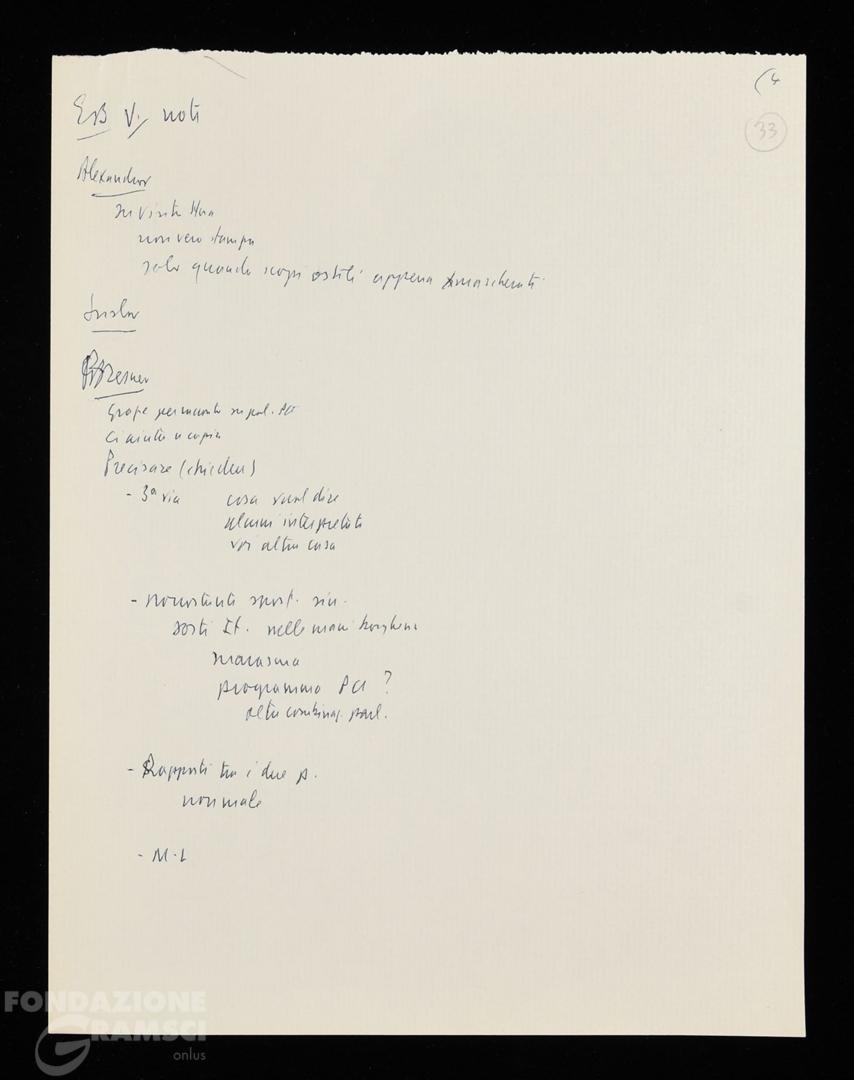 (4
33
EnB V. noti
Alexandrov
In visita
non vero stampa
solo quando scopi ostili appena mascherati
Suslov
Breznev
Gruppo permanente su pol. PCI
Ci aiuta a capire
Precisare (chiedere)
- 3ª via cosa vuol dire
alcuni interpretati
voi altra cosa
- nonostante spost. sin.
sorti It. nelle mani borghesia
marasma
programma PCI ?
altre combinaz. parl.
- Rapporti tra i due p.
normale
- M-L
FONDAZIONE
GRAMSCI
onlus